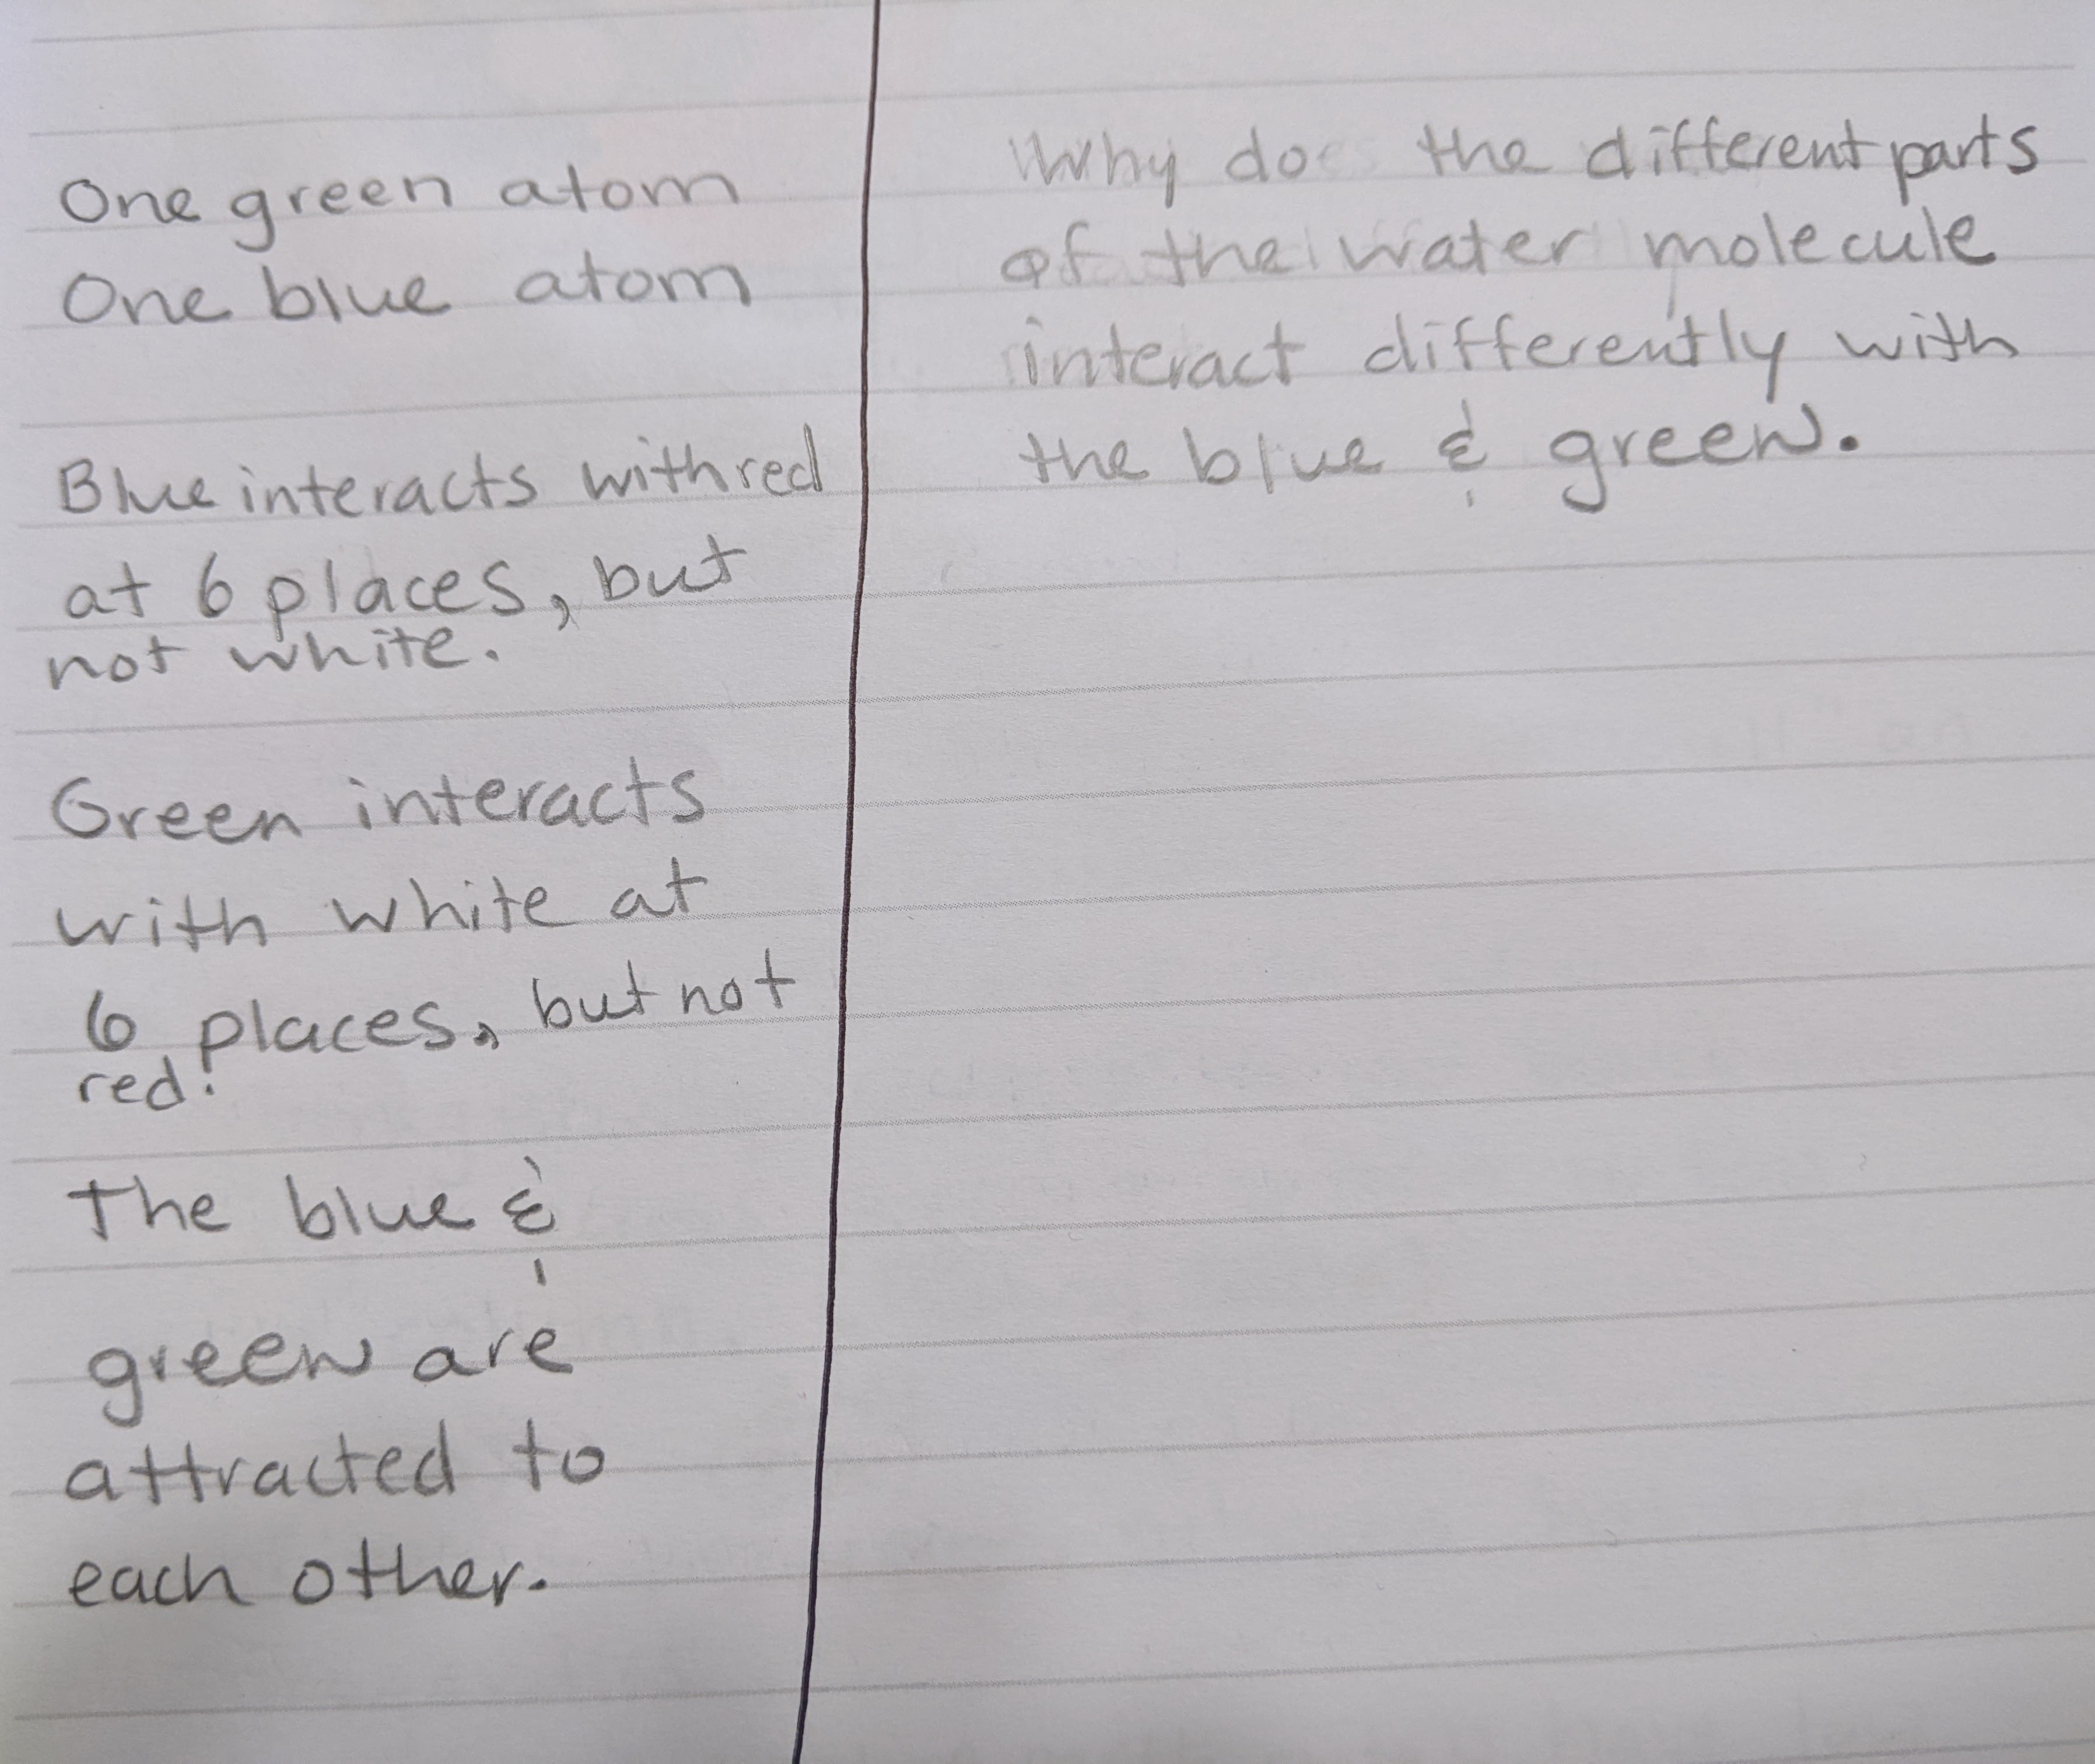 One green atom
One blue atom
Blue interacts with red
at 6 places, but
not white.
Green interacts
with white at
6 places, but not
red!
The blue &
green are
attracted to
each other.
Why do the different parts
of the water molecule
interact differently with
the blue & green.